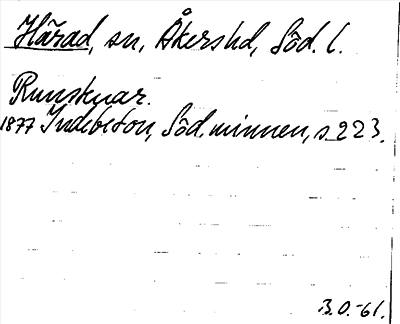 Härad, sn, Åkers hd, Söd. l.
Runskuar.
1877 Indebetou, Söd. minnen, s. 223.
B.O.-61.